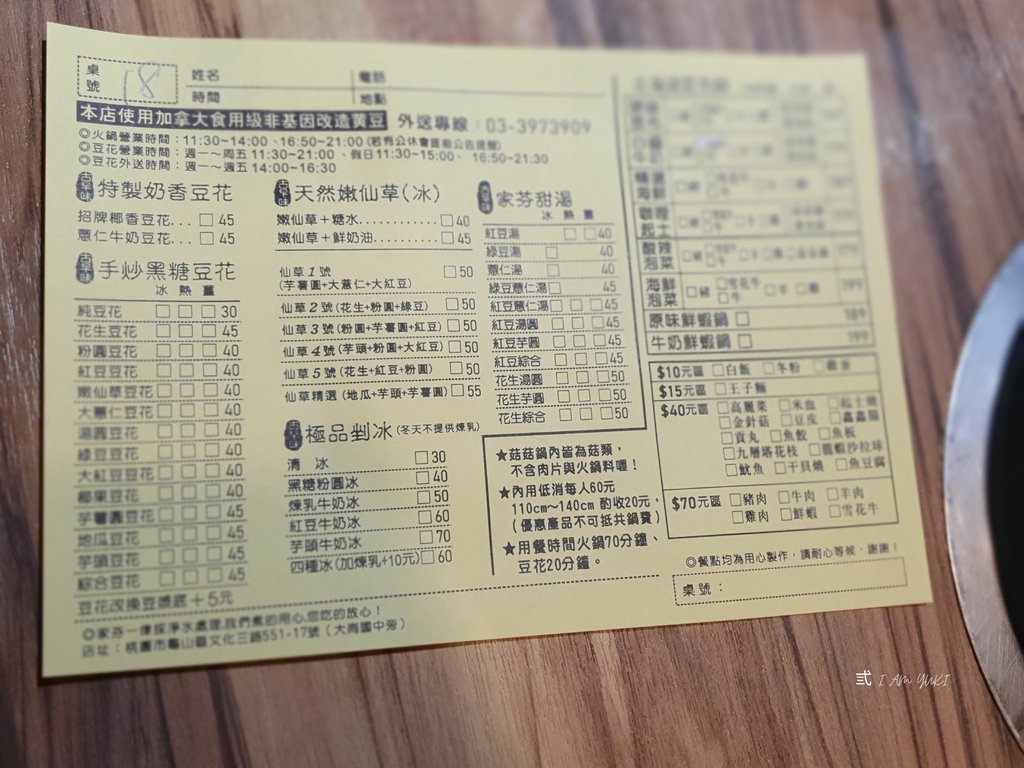 桌號 18
姓名
電話
時間
地點
本店使用加拿大食用級非基因改造黃豆
外送專線：03-3973909
◎火鍋營業時間：11:30~14:00、16:50~21:00(若有公休會提前公告提醒)
◎豆花營業時間：週一～周五11:30~21:00、假日11:30~15:00、16:50~21:30
◎豆花外送時間：週一～週五14:00~16:30
古早味 特製奶香豆花
招牌椰香豆花... □ 45
薏仁牛奶豆花... □ 45
古早味 手炒黑糖豆花
冰 熱 薑
純豆花 □ □ □ 30
花生豆花 □ □ □ 45
粉圓豆花 □ □ □ 40
紅豆豆花 □ □ □ 40
嫩仙草豆花 □ □ □ 40
大薏仁豆花 □ □ □ 40
湯圓豆花 □ □ □ 40
綠豆豆花 □ □ □ 40
大紅豆豆花 □ □ □ 40
椰果豆花 □ □ □ 40
芋薯圓豆花 □ □ □ 45
地瓜豆花 □ □ □ 45
芋頭豆花 □ □ □ 45
綜合豆花 □ □ □ 45
豆花改換豆漿底+5元
◎家芬一律採淨水處理,我們煮的用心,您吃的放心！
店址：桃園市龜山區文化三路551-17號（大崗國中旁）
古早味 天然嫩仙草(冰)
嫩仙草+糖水............ □ 40
嫩仙草+鮮奶油......... □ 45
仙草1號 □ 50
(芋薯圓+大薏仁+大紅豆)
仙草2號(花生+粉圓+綠豆) □ 50
仙草3號(粉圓+芋薯圓+紅豆) □ 50
仙草4號(芋頭+粉圓+大紅豆) □ 50
仙草5號(花生+紅豆+粉圓) □ 50
仙草精選(地瓜+芋頭+芋薯圓) □ 55
古早味 極品剉冰(冬天不提供煉乳)
清 冰 □ 30
黑糖粉圓冰 □ 40
煉乳牛奶冰 □ 50
紅豆牛奶冰 □ 60
芋頭牛奶冰 □ 70
四種冰(加煉乳+10元) □ 60
古早味 家芬甜湯
冰 熱 薑
紅豆湯 □ □ 40
綠豆湯 □ 40
薏仁湯 □ 40
綠豆薏仁湯 □ 45
紅豆薏仁湯 □ □ □ 40
紅豆湯圓 □ □ □ 45
紅豆芋圓 □ □ □ 45
紅豆綜合 □ □ □ 45
花生湯圓 □ □ □ 50
花生芋圓 □ □ □ 50
花生綜合 □ □ □ 50
★菇菇鍋內皆為菇類，
不含肉片與火鍋料喔！
★內用低消每人60元
110cm~140cm 酌收20元，
（優惠產品不可抵共鍋費）
★用餐時間火鍋70分鐘、
豆花20分鐘。
咖哩起士
酸辣泡菜
海鮮泡菜 □豬 □雪花牛 □牛 □羊 □雞 199
原味鮮蝦鍋 □ 189
牛奶鮮蝦鍋 □ 199
$10元區 □白飯 □冬粉 □雞蛋
$15元區 □王子麵
$40元區 □高麗菜 □米血 □起士條
□金針菇 □豆皮 □鑫鑫腸
□貢丸 □魚餃 □魚板
□九層塔花枝 □龍蝦沙拉球
□魷魚 □干貝燒 □魚豆腐
$70元區 □豬肉 □牛肉 □羊肉
□雞肉 □鮮蝦 □雪花牛
◎餐點均為用心製作，請耐心等候，謝謝！
桌號：
弎 I AM YUKI